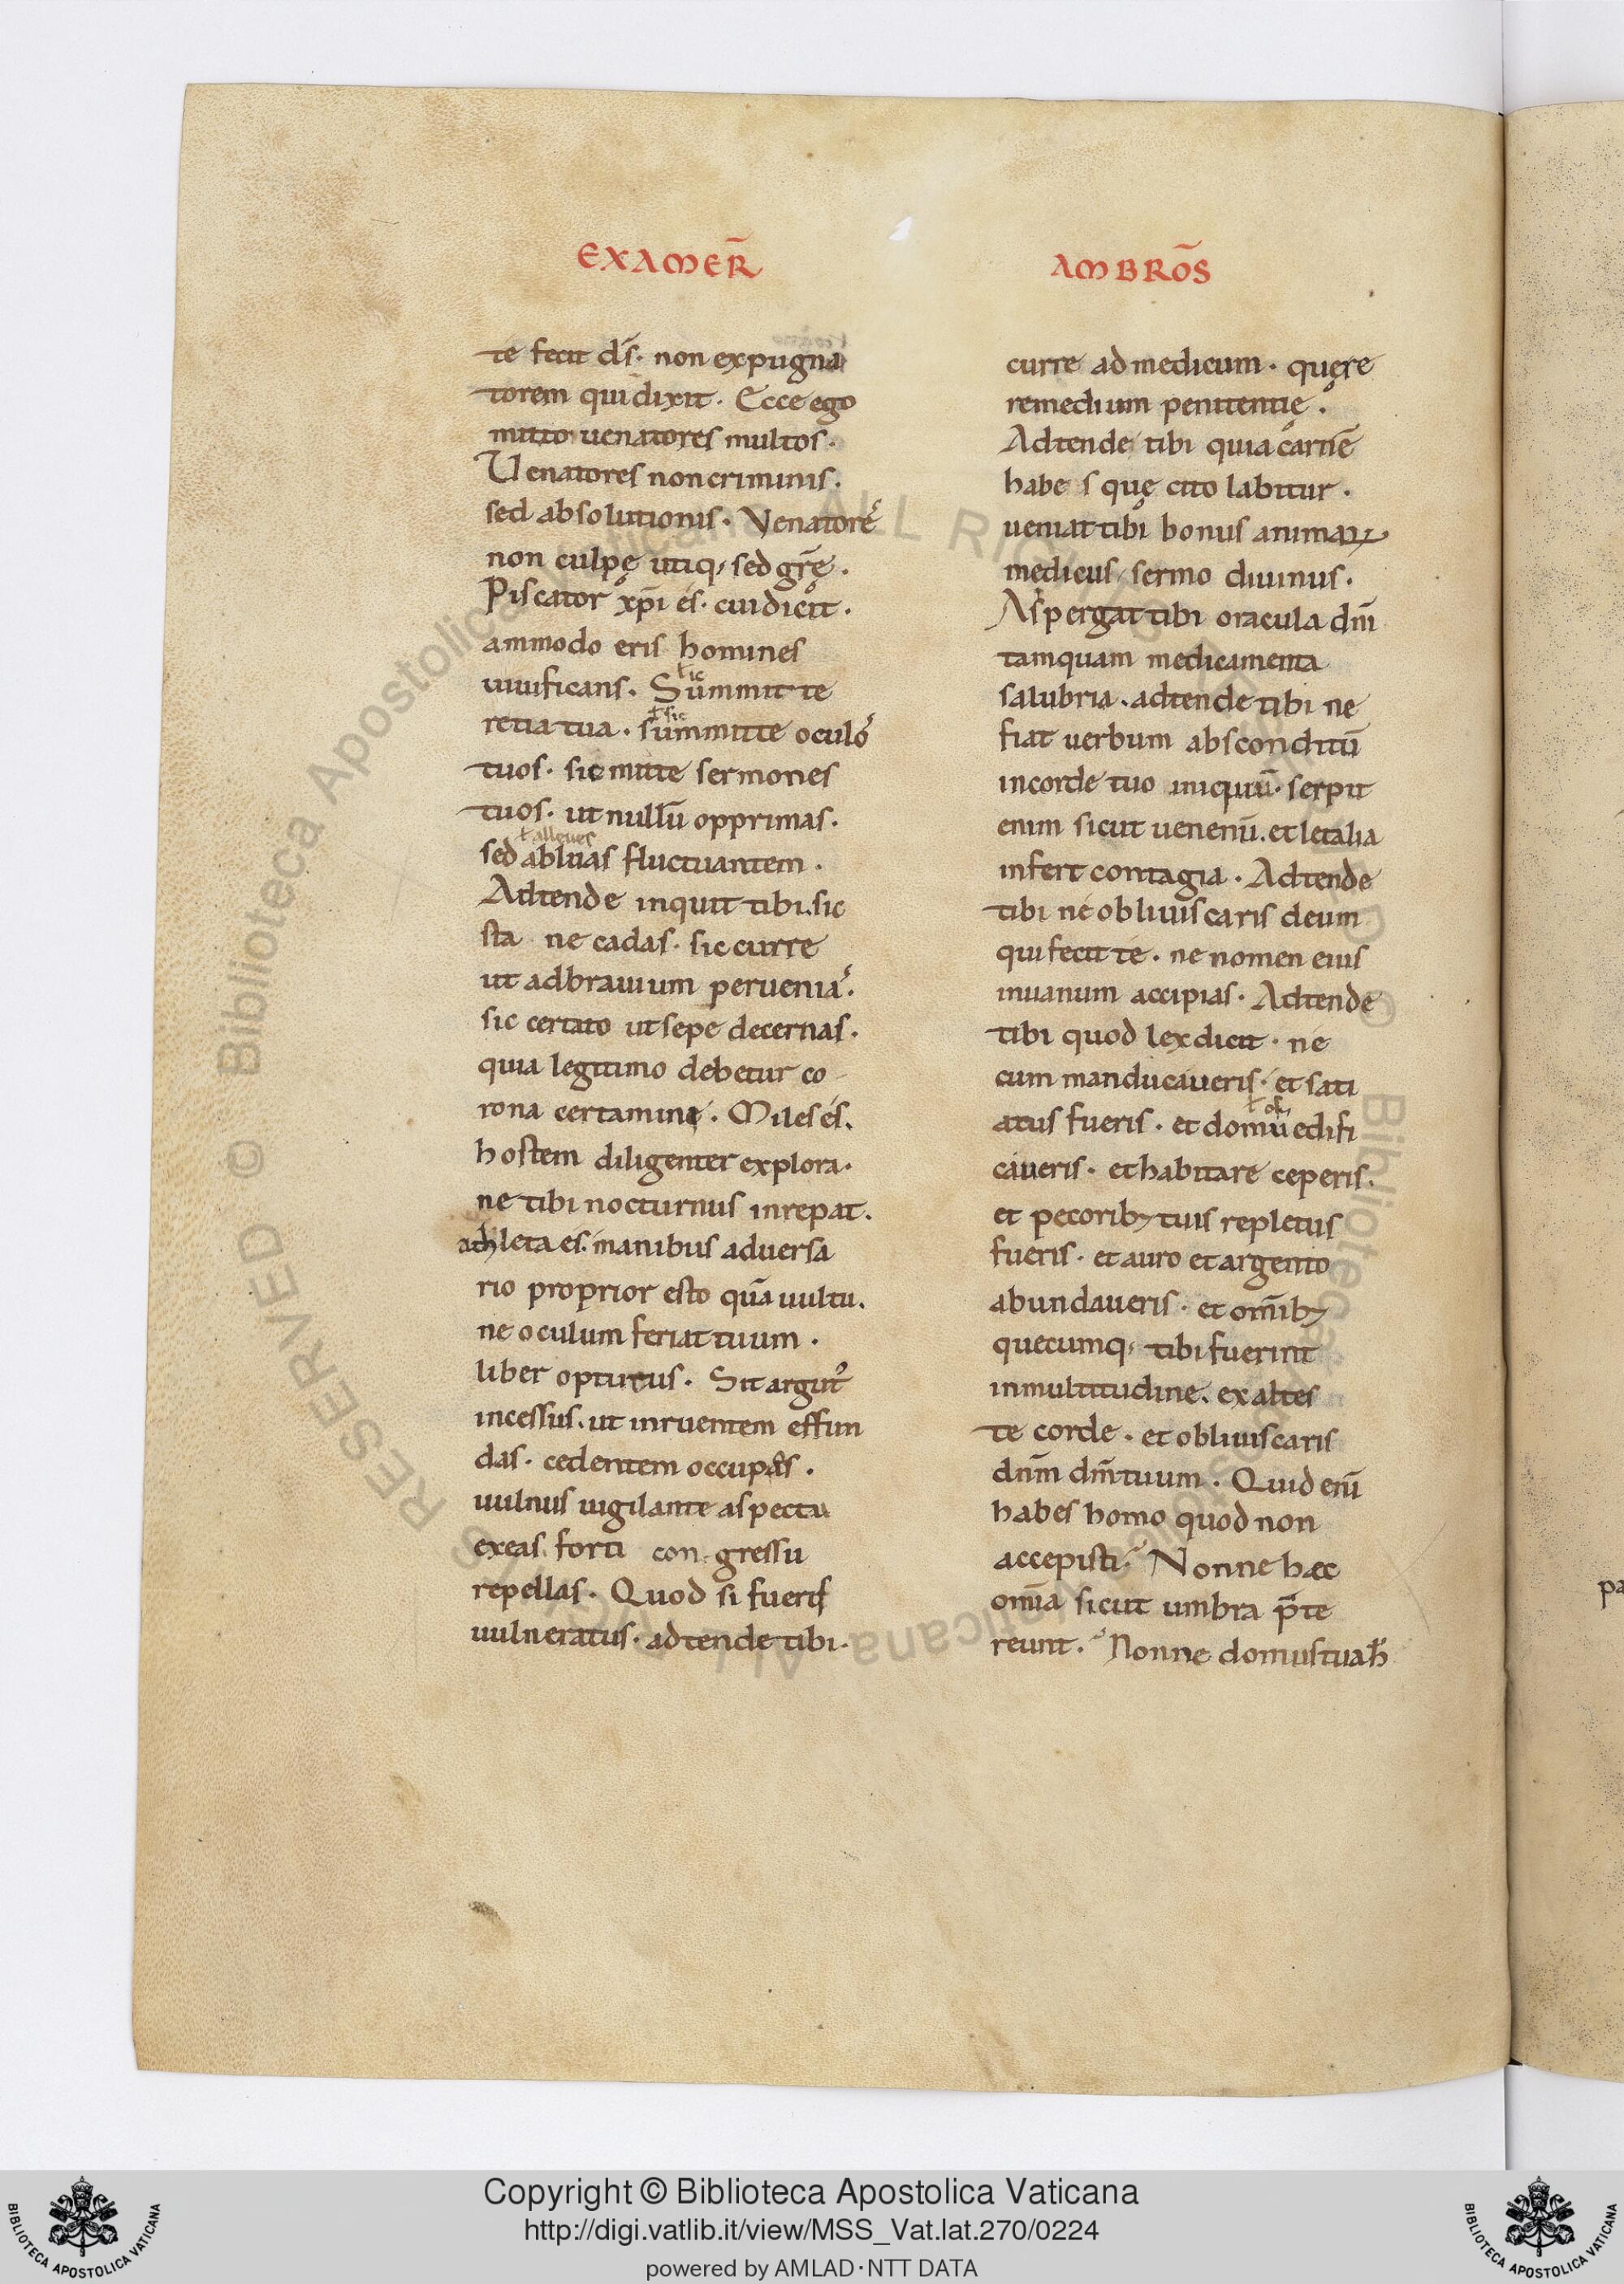 EXAMER̄
te fecit d̄s · non expugna
torem qui dixit · Ecce ego
mitto uenatores multos ·
Venatores non criminis ·
sed absolutionis · Venatoreᷤ
non culpę utiq; sed gr̄ę ·
Piscator xp̄i és · cui dicit ·
ammodo eris homines
uiuificans · Summit te
ƚ sic
retia tua · summitte oculoᷤ
ƚ sic
tuos · sic mitte sermones
tuos · ut nullū opprimas ·
sed abluas fluctuantem ·
ƚ alleues
Adtende inquit tibi · sic
sta ne cadas · sic curre
ut ad brauium perueniaᷤ ·
sic certato ut sepe decernas ·
quia legitimo debetur co
rona certamini · Miles és ·
hostem diligenter explora ·
ne tibi nocturnus inrepat ·
athleta es · manibus aduersa
rio proprior esto quā uultu ·
ne oculum feriat tuum ·
liber opturus · Sit argut᷒
incessus · ut inruentem effun
das · cedentem occupas ·
uulnus uigilante aspectu
exeas forti con gressu
repellas · Quod si fueris
uulneratus · adtende tibi ·
AMBRO̅S
curre ad medicum · quęre
remedium penitentię ·
Adtende tibi quia carnē
habes quę cito labitur ·
ueniat tibi bonus animaꝝ
medicus sermo diuinus ·
Aspergat tibi oracula dn̄i
tamquam medicamenta
salubria · adtende tibi ne
fiat uerbum absconditū
in corde tuo iniquū · serpit
enim sicut uenenū · et letalia
infert contagia · Adtende
tibi ne obliuiscaris deum
qui fecit te · ne nomen eius
in uanum accipias · Adtende
tibi quod lex dicit · ne
cum manducaueris · et sati
atus fueris · et domū edifi
ƚ os
caueris · et habitare ceperis ·
et pecorib; tuis repletus
fueris · et auro et argento
abundaueris · et om̄ib;
quecumq; tibi fuerint
in multitudine · exaltes
te corde · et obliuiscaris
dn̄m dm̄ tuum · Quid enī
habes homo quod non
accepisti? Nonne haec
om̄ia sicut umbra p̄te
reunt · Nonne domus tua h̄
Copyright © Biblioteca Apostolica Vaticana
http://digi.vatlib.it/view/MSS_Vat.lat.270/0224
powered by AMLAD·NTT DATA
BIBLIOTECA APOSTOLICA VATICANA
BIBLIOTECA APOSTOLICA VATICANA